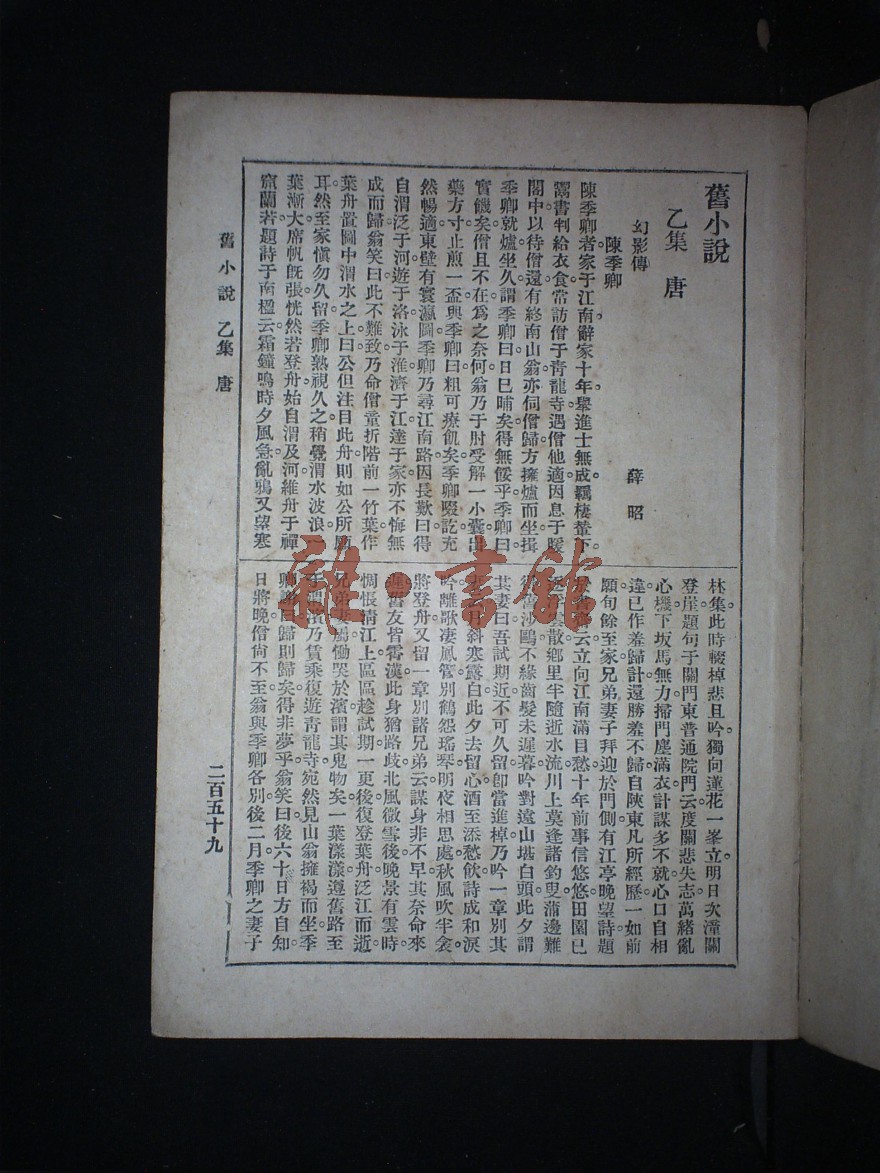 舊小說
乙集 唐
幻影傳
薛昭
陳季卿
陳季卿者家于江南辭家十年舉進士無成羈棲輦下
鬻書判給衣食常訪僧于青龍寺遇僧他適因息于暖
閣中以待僧還有終南山翁亦伺僧歸方擁爐而坐揖
季卿就爐坐久謂季卿曰日已晡矣得無餒乎季卿曰
實饑矣僧且不在為之奈何翁乃于肘受解一小囊出
藥方寸止煎一盃與季卿曰粗可療飢矣季卿啜訖充
然暢適東壁有寰瀛圖季卿乃尋江南路因長歎曰得
自渭泛于河遊于洛泳于淮濟于江達于家亦不悔無
成而歸翁笑曰此不難致乃命僧童折階前一竹葉作
葉舟置圖中渭水之上曰公但注目此舟則如公所
耳然至家愼勿久留季卿熟視久之稍覺渭水波浪一
葉漸大席帆旣張恍然若登舟始自渭及河維舟于禪
窟蘭若題詩于南楹云霜鐘鳴時夕風急亂鴉又望寒
林集此時輟棹悲且吟獨向蓮花一峯立明日次潼關
登崖題句于關門東普通院門云度關悲失志萬緒亂
心機下坂馬無力掃門塵滿衣計謀多不就心口自相
違已作羞歸計還勝羞不歸自陝東凡所經歷一如前
願旬餘至家兄弟妻子拜迎於門側有江亭晚望詩題
云立向江南滿目愁十年前事信悠悠田園已
雲散鄉里半隨近水流川上莫逢諸釣叟蒲邊難
沙鷗不緣齒髮未遲暮吟對遠山堪白頭此夕謂
其妻曰吾試期近不可久留卽當進棹乃吟一章別其
斜寒露白此夕去留心酒至添愁飲詩成和淚
吟離歌凄鳳管別鶴怨瑤琴明夜相思處秋風吹半衾
將登舟又留一章別諸兄弟云謀身非不早其奈命來
遲舊友皆霄漢此身猶路歧北風微雪後晚景有雲時
惆悵淸江上區區趁試期一更後復登葉舟泛江而逝
兄弟妻屬慟哭於濱謂其鬼物矣一葉漾漾遵舊路至
于渭濱乃賃乘復遊靑龍寺宛然見山翁擁褐而坐季
卿謝曰歸則歸矣得非夢乎翁笑曰後六十日方自知
日將晚僧尙不至翁與季卿各別後二月季卿之妻子
舊小說 乙集 唐
二百五十九